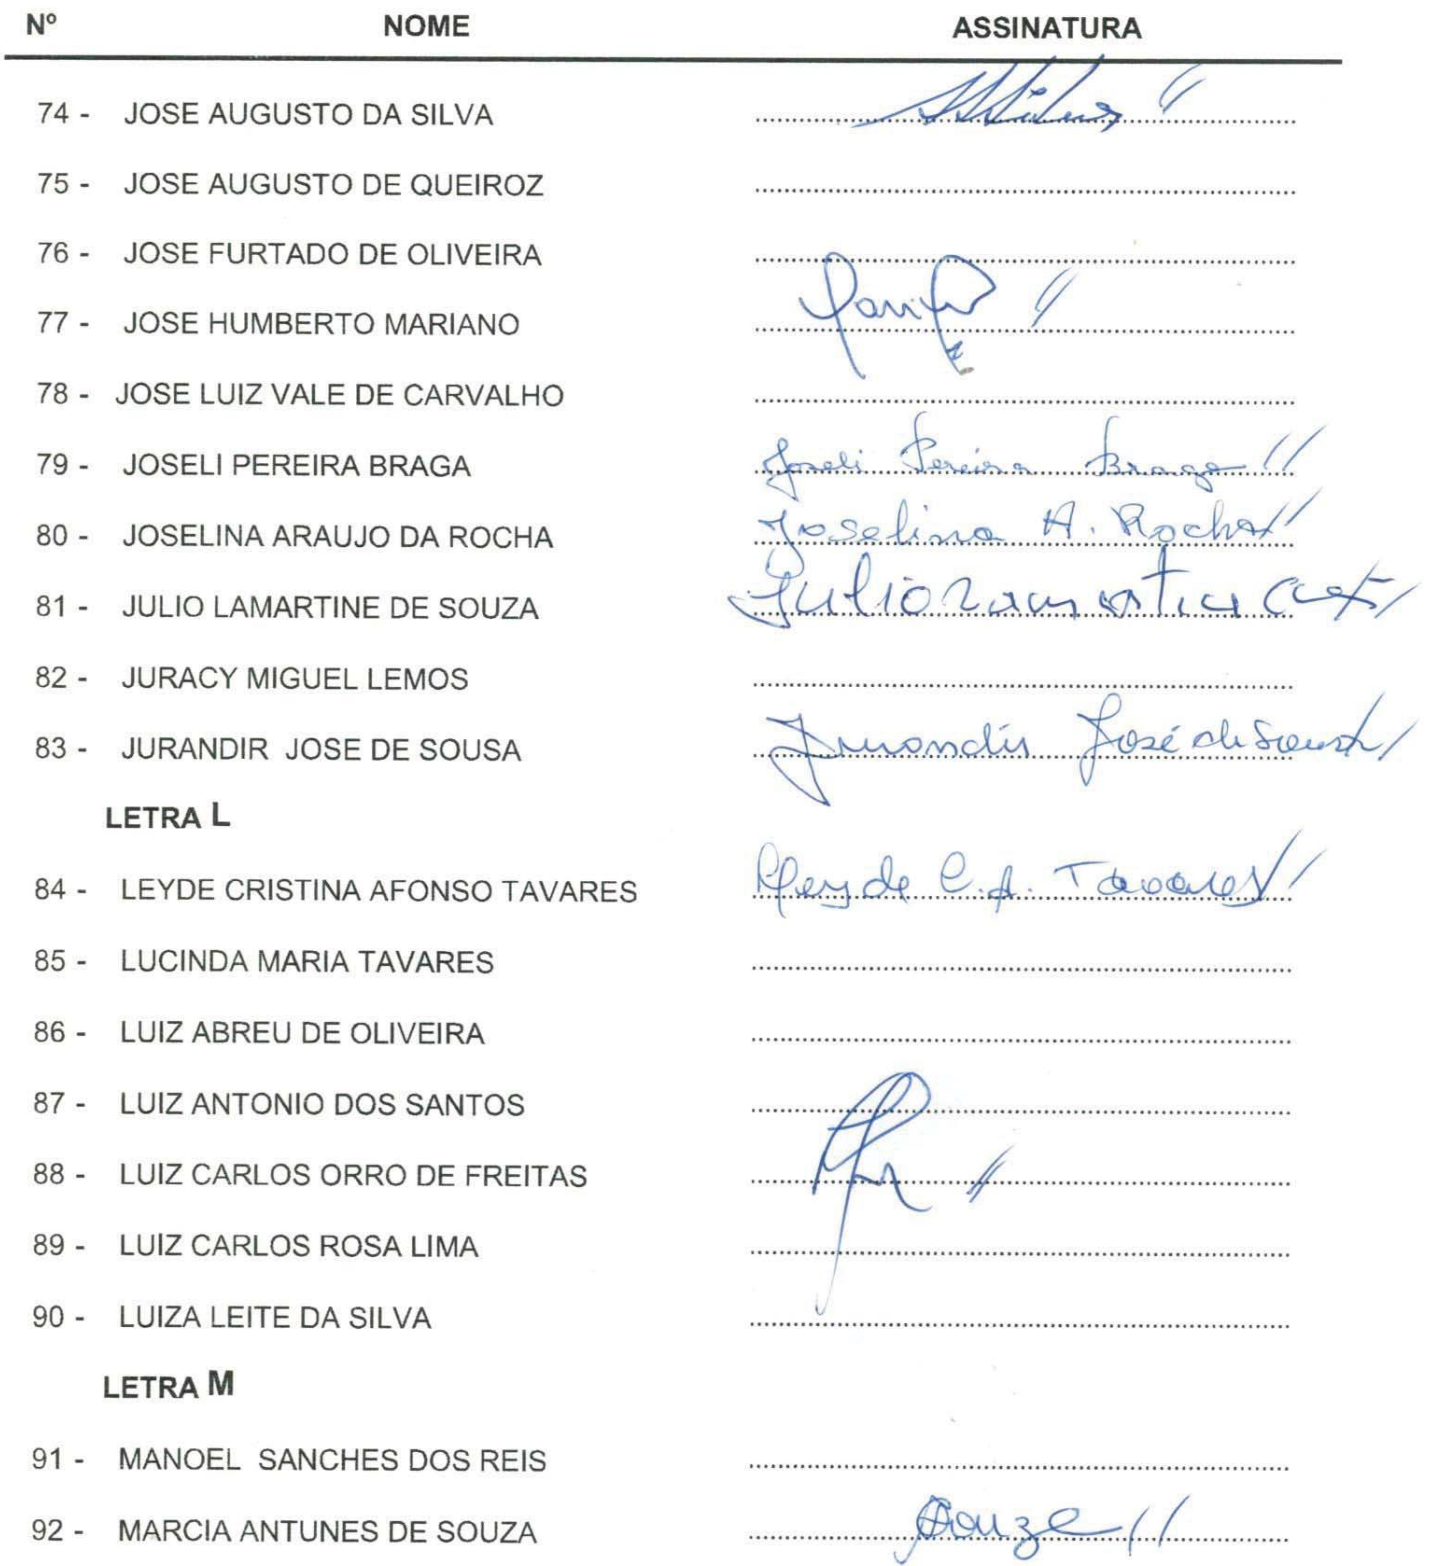 Nº NOME ASSINATURA
74 - JOSE AUGUSTO DA SILVA
75 - JOSE AUGUSTO DE QUEIROZ
76 - JOSE FURTADO DE OLIVEIRA
77 - JOSE HUMBERTO MARIANO
78 - JOSE LUIZ VALE DE CARVALHO
79 - JOSELI PEREIRA BRAGA Joseli Pereira Braga
80 - JOSELINA ARAUJO DA ROCHA Joselina A. Rocha
81 - JULIO LAMARTINE DE SOUZA Julio
82 - JURACY MIGUEL LEMOS
83 - JURANDIR JOSE DE SOUSA Jurandir José de Sousa
LETRA L
84 - LEYDE CRISTINA AFONSO TAVARES Leyde C.A. Tavares
85 - LUCINDA MARIA TAVARES
86 - LUIZ ABREU DE OLIVEIRA
87 - LUIZ ANTONIO DOS SANTOS
88 - LUIZ CARLOS ORRO DE FREITAS
89 - LUIZ CARLOS ROSA LIMA
90 - LUIZA LEITE DA SILVA
LETRA M
91 - MANOEL SANCHES DOS REIS
92 - MARCIA ANTUNES DE SOUZA